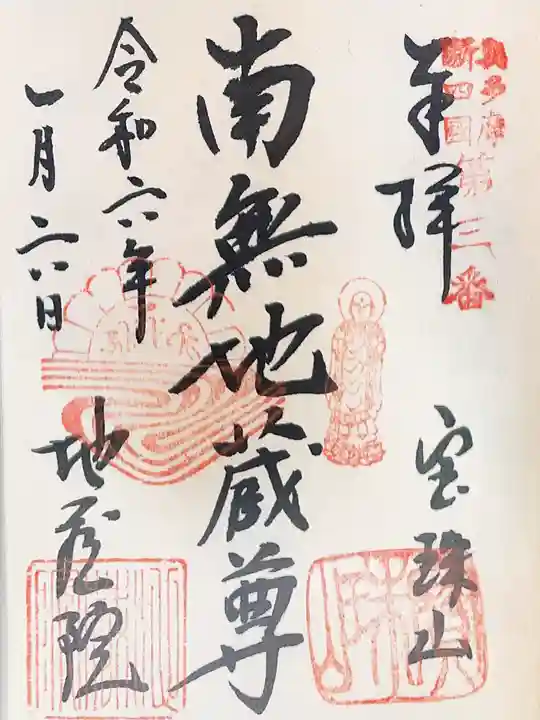 奥多摩
新四国
第三番
奉拝
宝珠山
南無地蔵尊
令和六年
一月二六日
地蔵院